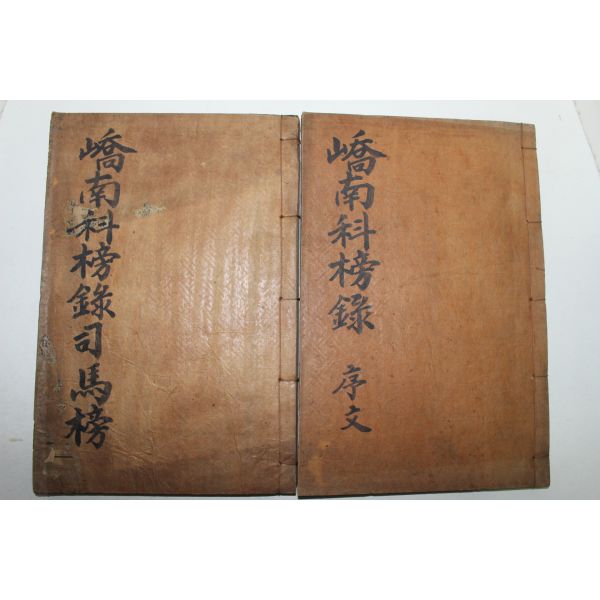 嶠南科榜錄 序文
嶠南科榜錄司馬榜